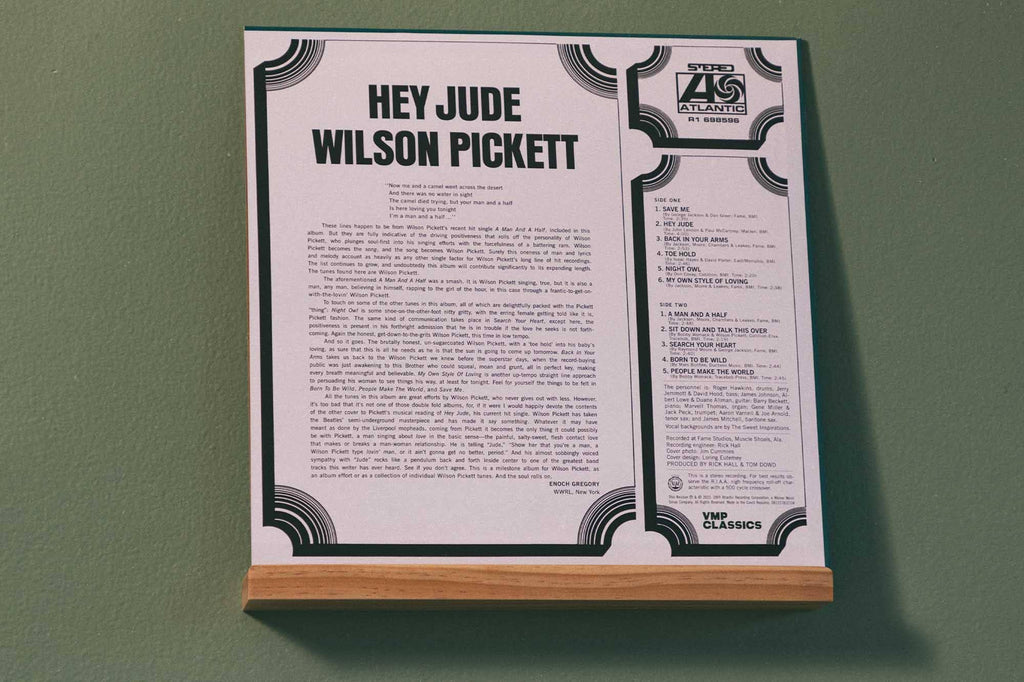 HEY JUDE
WILSON PICKETT
"Now me and a camel went across the desert
And there was no water in sight
The camel died trying, but your man and a half
Is here loving you tonight
I'm a man and a half ...."
These lines happen to be from Wilson Pickett's recent hit single A Man And A Half, included in this
album. But they are fully indicative of the driving positiveness that rolls off the personality of Wilson
Pickett, who plunges soul-first into his singing efforts with the forcefulness of a battering ram. Wilson
Pickett becomes the song, and the song becomes Wilson Pickett. Surely this oneness of man and lyrics
and melody account as heavily as any other single factor for Wilson Pickett's long line of hit recordings.
The list continues to grow, and undoubtedly this album will contribute significantly to its expanding length.
The tunes found here are Wilson Pickett.
The aforementioned A Man And A Half was a smash. It is Wilson Pickett singing, true, but it is also a
man, any man, believing in himself, rapping to the girl of the hour, in this case through a frantic-to-get-on-
with-the-lovin' Wilson Pickett.
To touch on some of the other tunes in this album, all of which are delightfully packed with the Pickett
"thing": Night Owl is some shoe-on-the-other-foot nitty gritty, with the erring female getting told like it is,
Pickett fashion. The same kind of communication takes place in Search Your Heart, except here, the
positiveness is present in his forthright admission that he is in trouble if the love he seeks is not forth-
coming. Again the honest, get-down-to-the-grits Wilson Pickett, this time in low tempo.
And so it goes. The brutally honest, un-sugarcoated Wilson Pickett, with a 'toe hold' into his baby's
loving, as sure that this is all he needs as he is that the sun is going to come up tomorrow. Back in Your
Arms takes us back to the Wilson Pickett we knew before the superstar days, when the record-buying
public was just awakening to this Brother who could squeal, moan and grunt, all in perfect key, making
every breath meaningful and believable. My Own Style Of Loving is another up-tempo straight line approach
to persuading his woman to see things his way, at least for tonight. Feel for yourself the things to be felt in
Born To Be Wild, People Make The World, and Save Me.
All the tunes in this album are great efforts by Wilson Pickett, who never gives out with less. However,
it's too bad that it's not one of those double fold albums, for, if it were I would happily devote the contents
of the other cover to Pickett's musical reading of Hey Jude, his current hit single. Wilson Pickett has taken
the Beatles' semi-underground masterpiece and has made it say something. Whatever it may have
meant as done by the Liverpool mopheads, coming from Pickett it becomes the only thing it could possibly
be with Pickett, a man singing about love in the basic sense—the painful, salty-sweet, flesh contact love
that makes or breaks a man-woman relationship. He is telling "Jude," "Show her that you're a man, a
Wilson Pickett type lovin' man, or it ain't gonna get no better, period." And his almost sobbingly voiced
sympathy with "Jude" rocks like a pendulum back and forth inside center to one of the greatest band
tracks this writer has ever heard. See if you don't agree. This is a milestone album for Wilson Pickett, as
an album effort or as a collection of individual Wilson Pickett tunes. And the soul rolls on.
ENOCH GREGORY
WWRL, New York
STEREO
ATLANTIC
R1 698596
SIDE ONE
1. SAVE ME
(By George Jackson & Dan Greer; Fame, BMI.
2. HEY JUDE
(By John Lennon & Paul McCartney; Maclen, BMI.
3. BACK IN YOUR ARMS
(By Jackson, Moore, Chambers & Leakes; Fame, BMI.
4. TOE HOLD
(By Isaac Hayes & David Porter; East/Memphis, BMI.
5. NIGHT OWL
6. MY OWN STYLE OF LOVING
(By Jackson, Moore & Leakes; Fame, BMI. Time: 2:38)
SIDE TWO
1. A MAN AND A HALF
(By Jackson, Moore, Chambers & Leakes; Fame,
2. SIT DOWN AND TALK THIS OVER
(By Bobby Womack & Wilson Pickett; Cotillion-Erva
3. SEARCH YOUR HEART
(By Raymond Moore & George Jackson; Fame,
4. BORN TO BE WILD
5. PEOPLE MAKE THE WORLD
(By Bobby Womack; Tracebob Press, BMI.
The personnel is: Roger Hawkins, drums; Jerry
Jemmott & David Hood, bass; James Johnson, Al-
bert Lowe & Duane Allman, guitar; Barry Beckett,
piano; Marvell Thomas, organ; Gene Miller &
Jack Peck, trumpet; Aaron Varnell & Joe Arnold,
tenor sax; and James Mitchell, baritone sax.
Vocal backgrounds are by The Sweet Inspirations.
Recorded at Fame Studios, Muscle Shoals, Ala.
Recording engineer: Rick Hall
Cover photo: Jim Cummins
Cover design: Loring Eutemey
PRODUCED BY RICK HALL & TOM DOWD
This is a stereo recording. For best results ob-
serve the R.I.A.A. high frequency roll-off char-
acteristic with a 500 cycle crossover.
VMP
CLASSICS